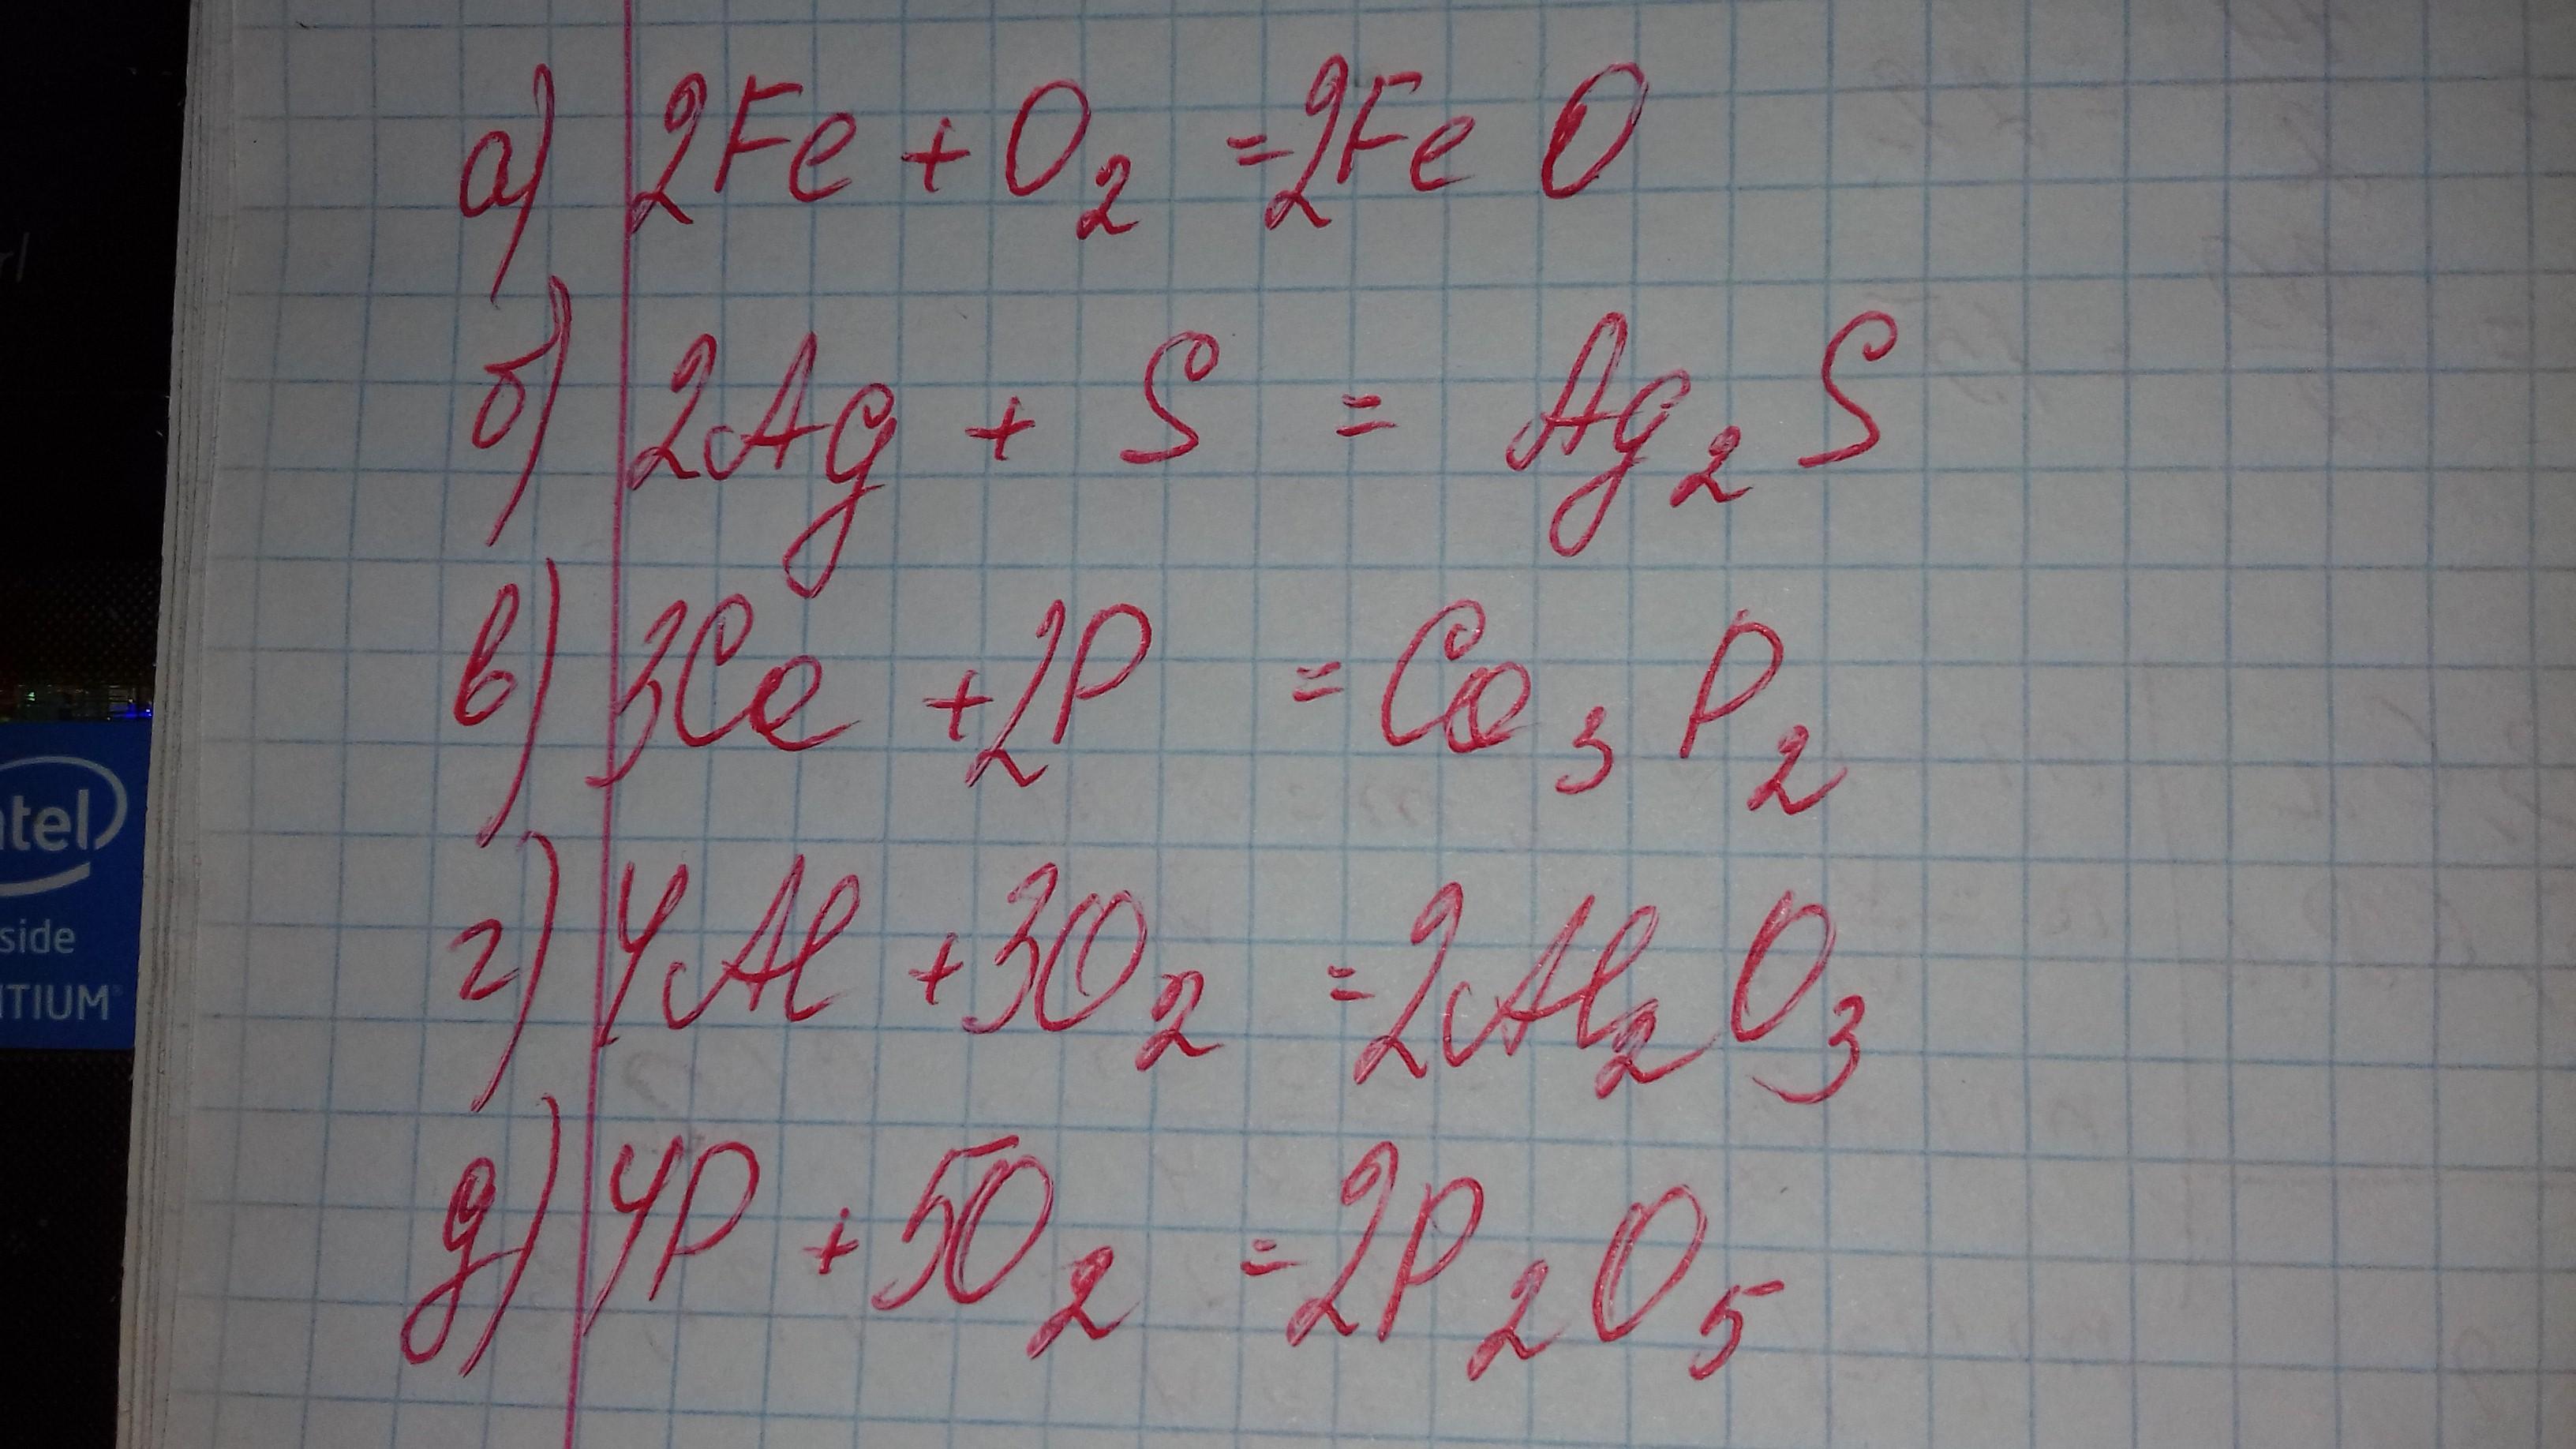 а) 2Fe + O₂ = 2Fe O
б) 2Ag + S = Ag₂ S
в) 3Ca + 2P = Ca₃ P₂
г) 4Al + 3O₂ = 2Al₂ O₃
д) 4P + 5O₂ = 2P₂ O₅
ntel
side
NTIUM